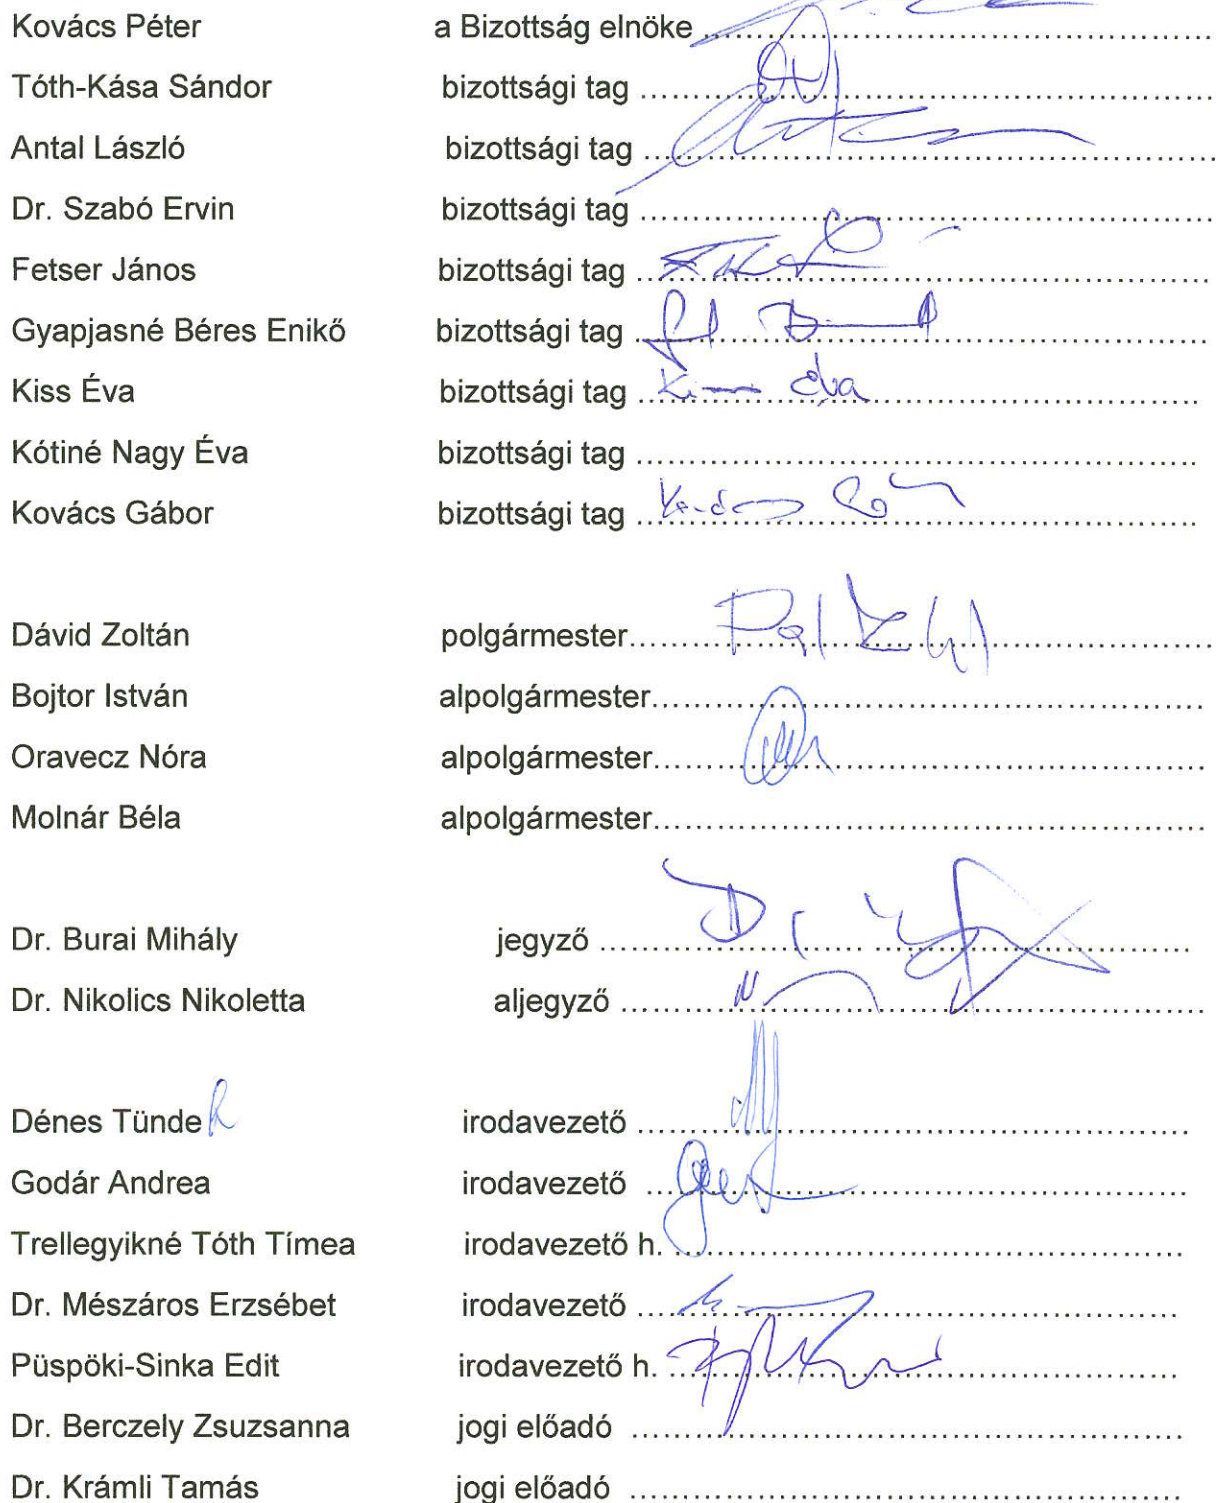 Kovács Péter a Bizottság elnöke ..........
Tóth-Kása Sándor bizottsági tag ..........
Antal László bizottsági tag ..........
Dr. Szabó Ervin bizottsági tag ..........
Fetser János bizottsági tag ..........
Gyapjasné Béres Enikő bizottsági tag ..........
Kiss Éva bizottsági tag .......... Kiss Éva
Kótiné Nagy Éva bizottsági tag ..........
Kovács Gábor bizottsági tag ..........
Dávid Zoltán polgármester..........
Bojtor István alpolgármester..........
Oravecz Nóra alpolgármester..........
Molnár Béla alpolgármester..........
Dr. Burai Mihály jegyző ..........
Dr. Nikolics Nikoletta aljegyző ..........
Dénes Tünde irodavezető ..........
Godár Andrea irodavezető ..........
Trellegyikné Tóth Tímea irodavezető h. ..........
Dr. Mészáros Erzsébet irodavezető ..........
Püspöki-Sinka Edit irodavezető h. ..........
Dr. Berczely Zsuzsanna jogi előadó ..........
Dr. Krámli Tamás jogi előadó ..........